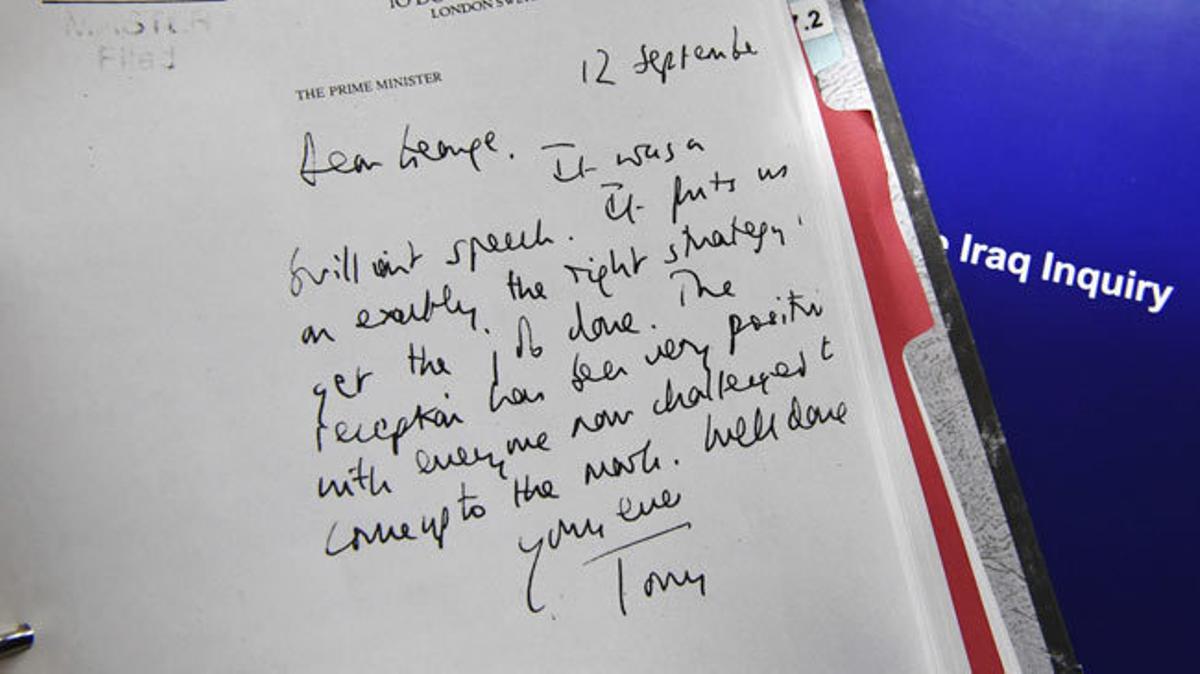 MINISTER
Filed
10 DO
LONDON SW
THE PRIME MINISTER
12 Septembe
Dear George. It was a
brilliant speech. It puts us
on exactly the right strategy
get the job done. The
reception has been very positiv
with everyone now challenged t
come up to the mark. Well done
Yours ever
Tony
7.2
e Iraq Inquiry